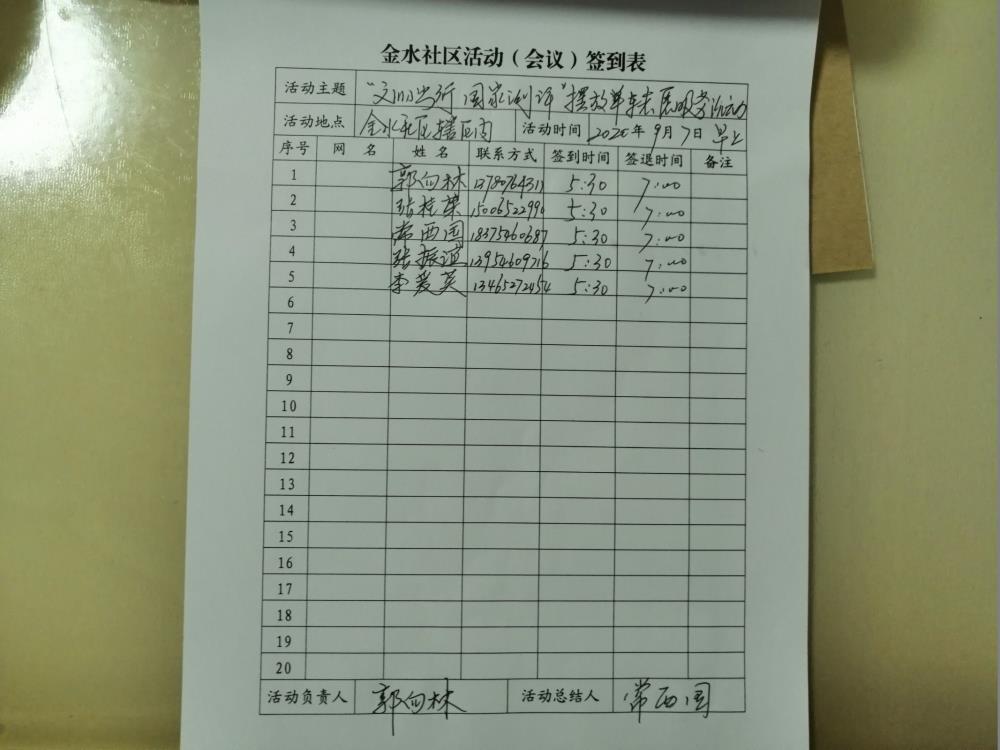 金水社区活动（会议）签到表
活动主题
活动地点 金水社区辖区内 活动时间 2020年9月7日 早上
序号 网 名 姓 名 联系方式 签到时间 签退时间 备注
1 郭向林 5:30 7:00
2 张桂荣 15006522990 5:30 7:00
3 常西国 18375460687 5:30 7:00
4 张振谊 13954609716 5:30 7:00
5 李爱英 13465272454 5:30 7:00
6
7
8
9
10
11
12
13
14
15
16
17
18
19
20
活动负责人 郭向林 活动总结人 常西国